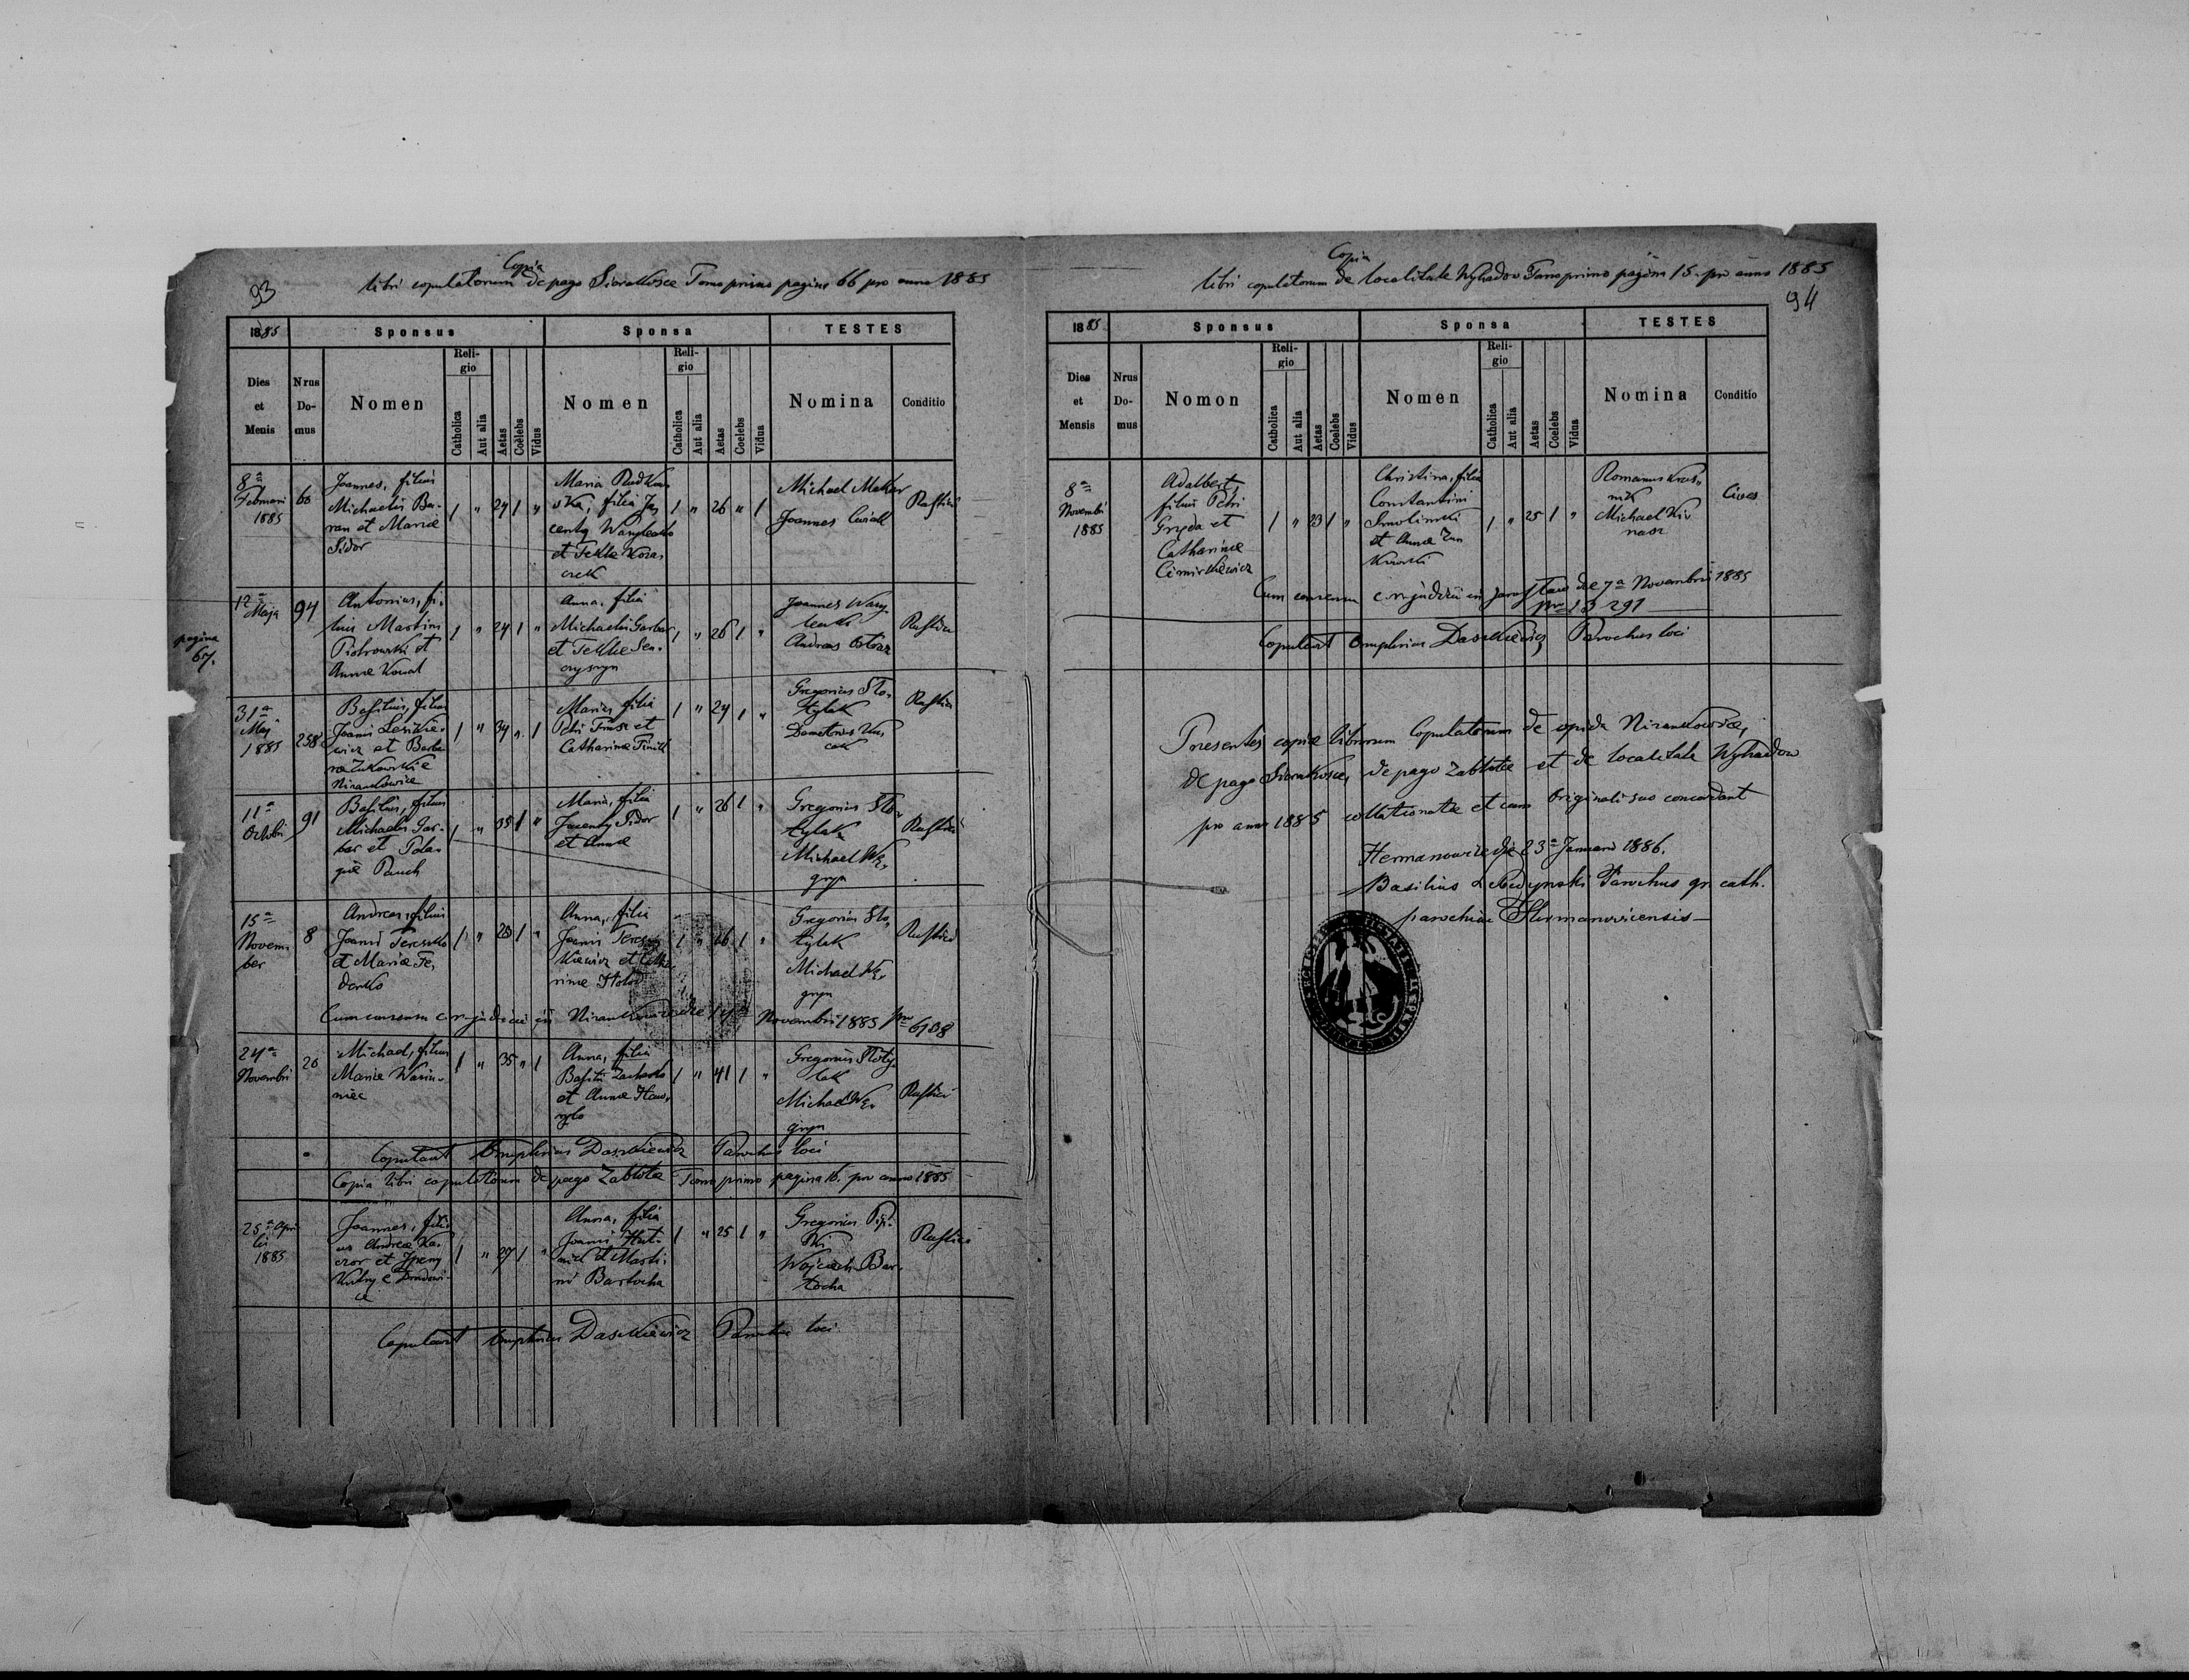 93
Copia
libri copulatorum de pago Siorakosce Tomo primo pagina 66 pro anno 1885
1885
Sponsus
Sponsa
TESTES
Dies
et
Menis
Nrus
Do-
mus
Nomen
Reli-
gio
Catholica
Aut alia
Aetas
Coelebs
Vidus
Nomen
Reli-
gio
Catholica
Aut alia
Aetas
Coelebs
Vidua
Nomina
Conditio
8a
Februari
1885
60
Joannes, filius
Michaelis Ba-
ran et Mariæ
Sidor
1 " 24 1 "
Maria Rudkow
ska, filia Ja
centy
et Teklæ Kozu
czek
1 " 26 " 1
Michael Makar
Joannes
Rustici
pagina
67.
12a
Maja
94
Antonius, fi-
lius Martini
Piotrowski et
Annæ Kowal
1 " 24 1 "
Anna, filia
Michaelis Garbar
et Teklæ Sen-
czyszyn
1 " 26 1 "
Joannes Wasy-
lenko
Andreas
Rustici
31a
Maj
1885
258
Basilius, filius
Joannis Leszkie-
wicz et Barba
ræ Zukowski e
Nizankowice
1 " 34 " 1
Maria, filia
Petri et
Catharinæ
1 " 24 1 "
Gregorius Sto-
tylak
Rustici
11a
Octobri
91
Basilius, filius
Michaelis Gar-
bar et Pela-
giæ Pauch
1 " 35 1 "
Maria, filia
Jacenty Sidor
et Annæ
1 " 26 1 "
Gregorius Sto
tylak
Michael Wę-
gryn
Rustici
15a
Novem
ber
8
Andreas, filius
Joannis Tereszko
et Mariæ Fe-
denko
1 " 28 1 "
Anna, filia
Joannis Teresz
kiewicz et Catha
rinæ Holod
1 " 26 1 "
Gregorius Sto
tylak
Michael Wę-
gryn
Rustici
Cum consensu c. r. judicii in Nizankowice die 14a Novembri 1885 Nro 6108
24a
Novembri
20
Michael, filius
Mariæ Wasiu-
niec
1 " 35 " 1
Anna, filia
Basilii Zacharko
et Annæ Haw-
rylo
1 " 41 1 "
Gregorius Stoty-
lak
Michael Wę-
gryn
Rustici
Copulavit Omphrius Daszkiewicz Parochus loci
Copia libri copulatorum de pago Zablotce Tomo primo pagina 15. pro anno 1885
25a Apri
lis
1885
Joannes, fili-
us Andreæ Ka-
czor et
1 " 27 1 "
Anna, filia
Joannis
1 " 25 1 "
Gregorius
Wojciech Bar-
tocha
Rustici
Copulavit Omphrius Daszkiewicz Parochus loci
94
Copia
libri copulatorum de localitate Wyhadow Tomo primo pagina 15. pro anno 1885
1885
Sponsus
Sponsa
TESTES
Dies
et
Mensis
Nrus
Do-
mus
Nomon
Reli-
gio
Catholica
Aut alia
Aetas
Coelebs
Vidus
Nomen
Reli-
gio
Catholica
Aut alia
Aetas
Coelebs
Vidua
Nomina
Conditio
8a
Novembri
1885
Adalbert,
filius Petri
Gryda et
Catharinæ
Cimirkiewicz
1 " 23 1 "
Christina, filia
Constantini
Smolinski
et Annæ Zun
kowski
1 " 25 1 "
Romanus Kras-
nik
Michael
Cives
Cum consensu c. r. judicii in Jarostaw de 7a Novembri 1885
Nro 13291
Copulavit Omphrius Daszkiewicz Parochus loci
Presentes copiæ librorum Copulatorum de opida Nizankowice,
de pago Siorakosce, de pago Zablotce et de localitate Wyhadow
pro anno 1885 collationatæ et cum originali suo concordant
Hermanowice die 23a Januarii 1886.
Basilius Parochus gr. cath.
parochiæ Hermanovicensis